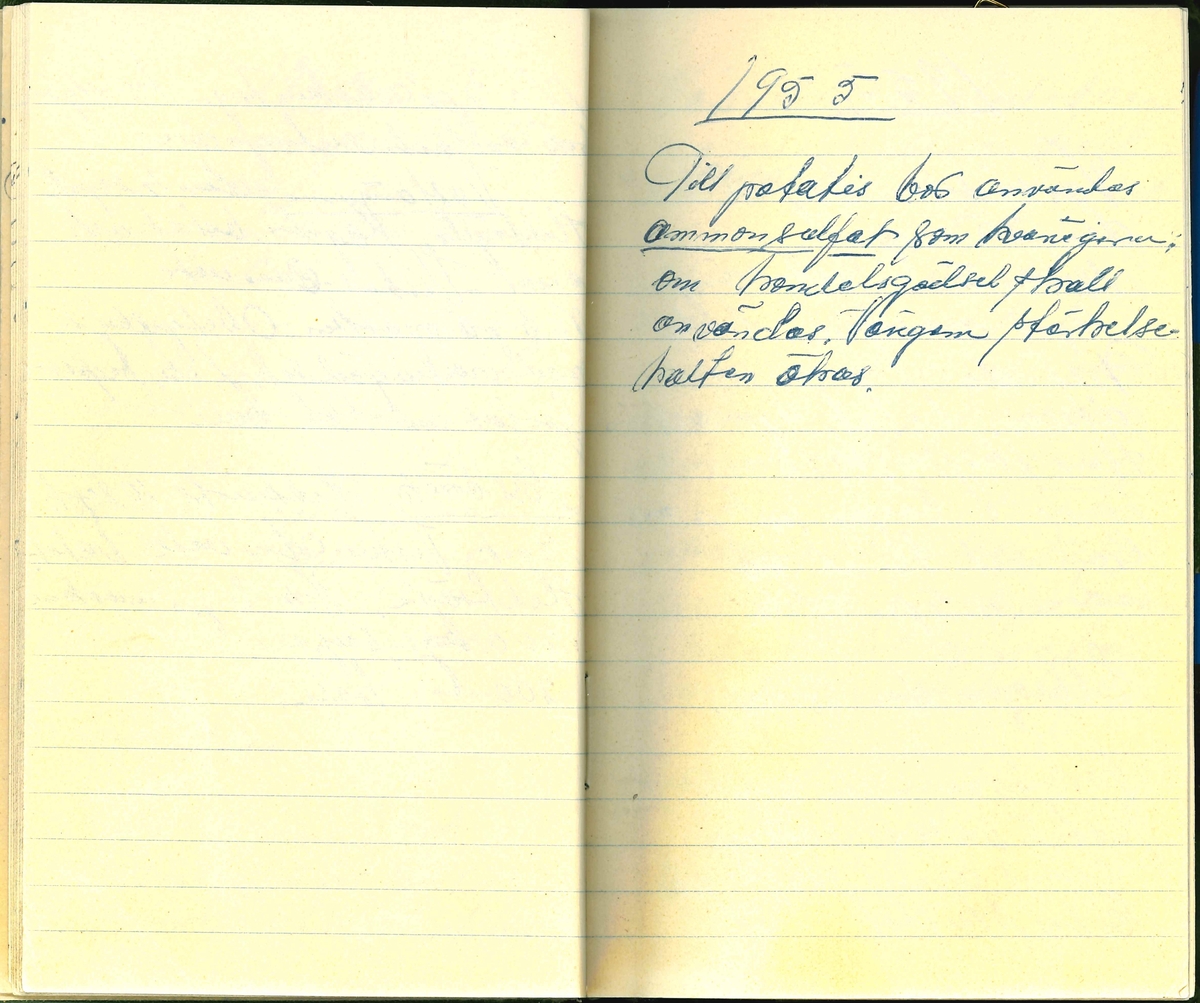 1955
Till potatis bör användas
ammonsulfat som kvävegiva,
om handelsgödsel skall
användas, tÿ stärkelse-
halten ökas.